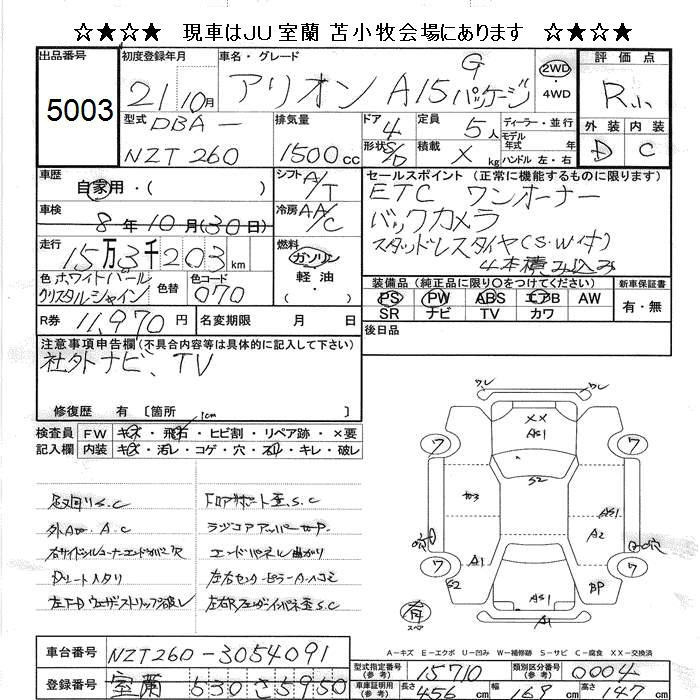 ☆★☆★ 現車はJU室蘭 苫小牧会場にあります ☆★☆★
出品番号
5003
初度登録年月
21 10月
車名・グレード
アリオン A15 Gパッケージ
2WD
・4WD
評価点
R
型式
DBA-
NZT260
排気量
1500cc
ドア
4
形状
S/D
定員
5人
積載
X kg
ディーラー・並行
モデル
年式 年
ハンドル 左・右
外装
D
内装
C
車歴
自家用・( )
シフト
A/T
セールスポイント (正常に機能するものに限ります)
ETC ワンオーナー
バックカメラ
スタッドレスタイヤ(S.W付)
4本積み込み
車検
8年10月(30日)
冷房
AA/C
走行
15万3千203km
燃料
ガソリン
軽油・
( )
色 ホワイトパール
クリスタルシャイン
色替
色コード
070
装備品 (純正品に限り○をつけてください)
PS PW ABS エアB AW
SR ナビ TV カワ
新車保証書
有・無
R券 11,970円
名変期限 月 日
後日品
注意事項申告欄(不具合内容等は具体的に記入して下さい)
社外ナビ、TV
修復歴 有 〔箇所
1cm
検査員
記入欄
FW キズ・飛石・ヒビ割・リペア跡・×要
内装 キズ・汚レ・コゲ・穴・スレ・キレ・破レ
足回りS.C
外A A.C
フロアサポート歪、S.C
エンドパネル曲がり
ウレ
ウレ
XX
AS1
S2
7
7
7
7
カ3
AS1
A2
A1
S2
BP
AS1
A1
有
スペア
A-キズ E-エクボ U-凹み W-補修跡 S-サビ C-腐食 XX-交換済
車台番号 NZT260-3054091
登録番号 室蘭 530 さ5950
型式指定番号
(参考)
15710
類別区分番号
(参考)
0004
車庫証明用
(参考)
長さ 456 cm
幅 169 cm
高さ 147 cm